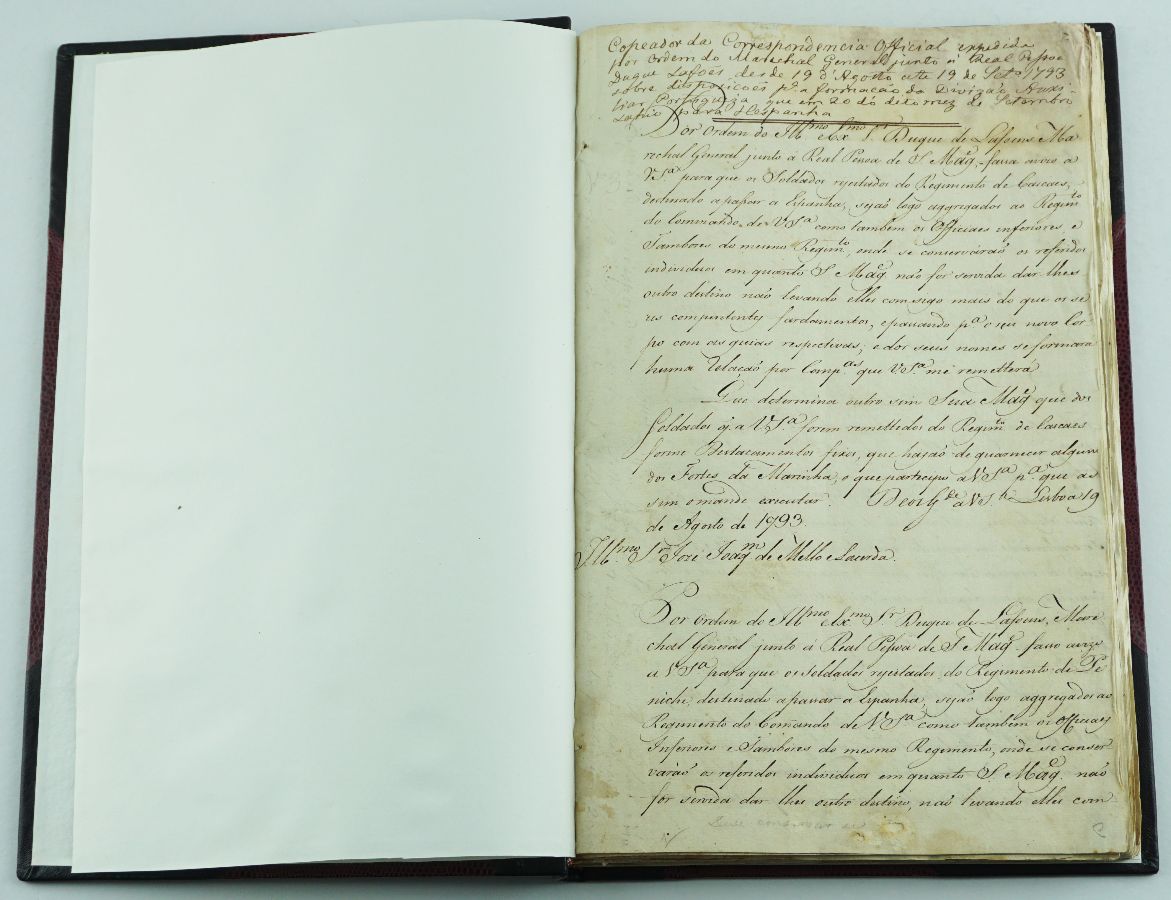 Copeador da Correspondencia Official expedida
por Ordem do Marechal General junto á Real Pessoa
Duque Lafões, desde 19 d'Agosto até 19 de Setº 1793
sobre disposições pª a formação da Divizaõ Auxi-
liar Portugueza que em 20 do dito mez de Setembro
para Hespanha
Por Ordem do Illmo e Exmo Sr. Duque de Lafoens Ma
rechal General junto á Real Pessoa de S. Magº, faço avizo a
VSª para que os Soldados rejeitados do Regimento de Cascaes,
destinado a passar a Espanha, sejaõ logo aggregados ao Regimto
do Commando de VSª como tambem os Officiaes inferiores, e
Tambores do mesmo Regimto, onde se conservaráõ os referidos
individuos em quanto S. Magº naõ for servida dar lhes
outro destino naõ levando elles com sigo mais do que os se
us competentes fardamentos, e passando pª o seu novo Cor
po com as guias respectivas; e dos seus nomes se formará
huma relaçaõ por Compas que VSª me remetterá
Que determina outro sim Sua Magº que dos
Soldados q. a VSª forem remettidos do Regimto de Cascaes
forme Destacamentos fixos, que hajaõ de guarnecer alguns
dos Fortes da Marinha, o que participo a VSª pª que as
sim o mande executar. Deos Gde a VSª Lisboa 19
de Agosto de 1793.
Illmo Sr. Jozé Joaqm de Mello e Lacerda.
Por Ordem do Illmo e Exmo Sr. Duque de Lafoens, Mare
chal General junto á Real Pessoa de S. Magº faço avizo
a VSª para que os Soldados rejeitados do Regimento de Pe
niche, destinado a passar a Espanha, sejaõ logo aggregados ao
Regimento do Comando de VSª como tambem os Officiaes
Inferiores e Tambores do mesmo Regimento, onde se conser
varáõ os referidos individuos em quanto S. Magº naõ
for servida dar lhes outro destino, naõ levando elles com-